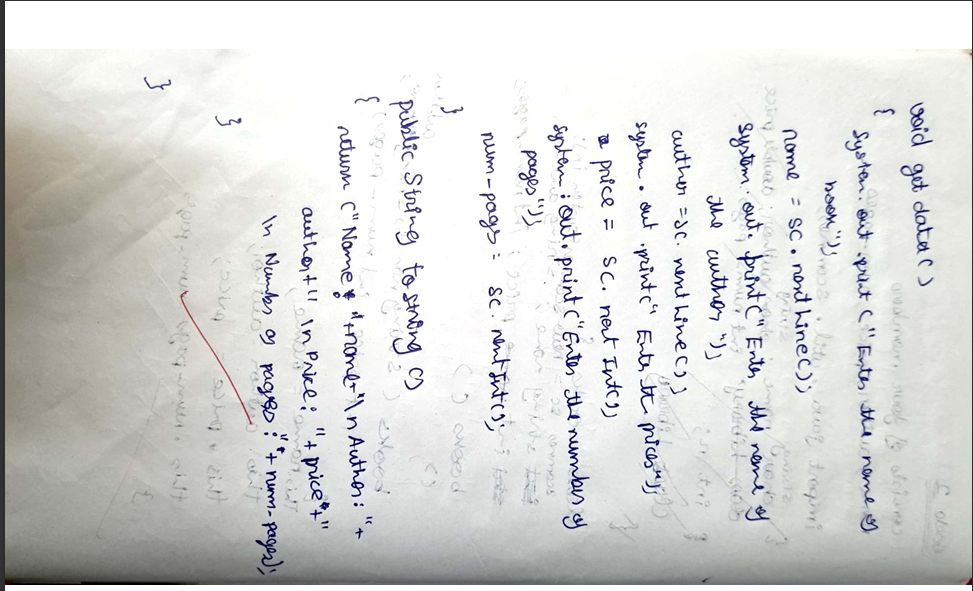 void get data ()
{
System. out .print ("Enter the name of
book");
name = sc . next Line();
System. out. print ("Enter the name of
the author,");
author = sc. next Line();
system . out .print (" Enter the prices");
price = sc. next Int();
system . out . print ("Enter the number of
pages");
num-pages = sc. next Int();
}
public String to string ()
{
return ("Name: "+name+"\n Author: "+
author+" \n Price: "+ price+"
\n Number of pages : "+ num-pages);
}
}